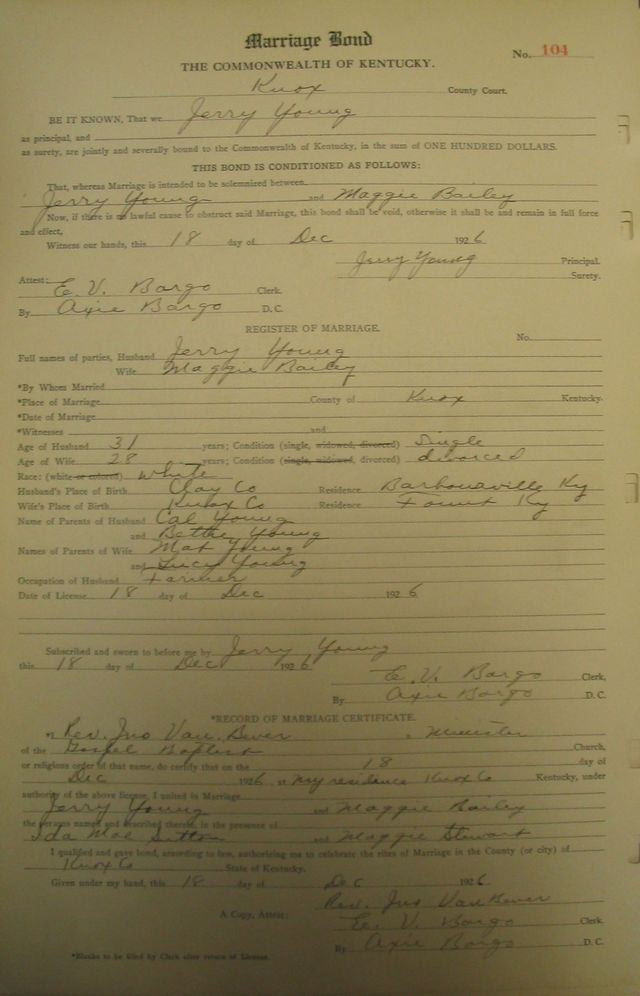 Marriage Bond
No. 104
THE COMMONWEALTH OF KENTUCKY.
Knox County Court.
BE IT KNOWN, That we Jerry Young
as principal, and
as surety, are jointly and severally bound to the Commonwealth of Kentucky, in the sum of ONE HUNDRED DOLLARS.
THIS BOND IS CONDITIONED AS FOLLOWS:
That, whereas Marriage is intended to be solemnized between
Jerry Young and Maggie Bailey
Now, if there is no lawful cause to obstruct said Marriage, this bond shall be void, otherwise it shall be and remain in full force
and effect,
Witness our hands, this 18 day of Dec 1926
Jerry Young Principal.
Surety.
Attest:
E. V. Bargo Clerk.
By Axie Bargo D. C.
REGISTER OF MARRIAGE.
No.
Full names of parties, Husband Jerry Young
Wife Maggie Bailey
*By Whom Married
*Place of Marriage County of Knox Kentucky.
*Date of Marriage
*Witnesses and
Age of Husband 31 years; Condition (single, widowed, divorced) Single
Age of Wife 28 years; Condition (single, widowed, divorced) divorced
Race: (white or colored) white
Husband's Place of Birth Clay Co Residence Barbourville Ky
Wife's Place of Birth Knox Co Residence Fount Ky
Name of Parents of Husband Cal Young
and Bettie Young
Names of Parents of Wife Mat Young
and Lucy Young
Occupation of Husband Farmer
Date of License 18 day of Dec 1926
Subscribed and sworn to before me by Jerry Young
this 18 day of Dec 1926
E. V. Bargo Clerk,
By Axie Bargo D. C.
*RECORD OF MARRIAGE CERTIFICATE.
*I Rev. Jno Van Bever, Minister
of the Gospel Baptist Church,
or religious order of that name, do certify that on the 18 day of
Dec 1926 at my residence Knox Co Kentucky, under
authority of the above license, I united in Marriage
Jerry Young and Maggie Bailey
the parties named and described therein, in the presence of
Ida Mae Sutton and Maggie Stewart
I qualified and gave bond, according to law, authorizing me to celebrate the rites of Marriage in the County (or city) of
Knox Co State of Kentucky.
Given under my hand, this 18 day of Dec 1926
Rev. Jno Van Bever
A Copy, Attest: E. V. Bargo Clerk.
By Axie Bargo D. C.
*Blanks to be filled by Clerk after return of License.